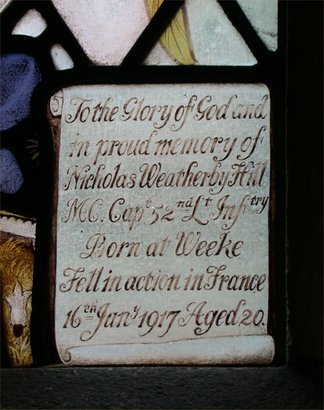 To the Glory of God and
in proud memory of
Nicholas Weatherby Hill
M.C. Capt 52nd Lt Inftry
Born at Weeke
Fell in action in France
16th Jany 1917 Aged 20.